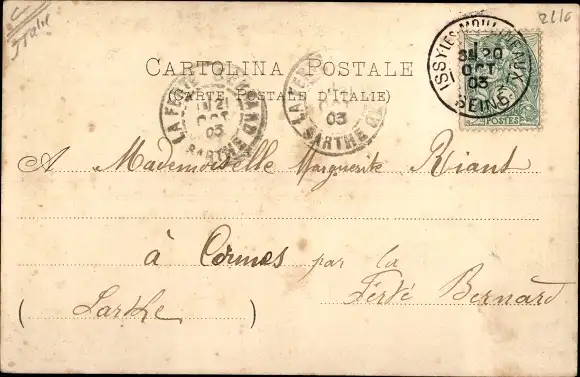 Italie
2210
CARTOLINA POSTALE
(CARTE POSTALE D'ITALIE)
ISSY-LES-MOULINEAUX
20
OCT
03
SEINE
POSTES
LA FERTE BERNARD
21
OCT
03
SARTHE
LA FERTE
03
SARTHE
A Mademoiselle Marguerite Riant
à Cormes par la
Ferté Bernard
(Sarthe)